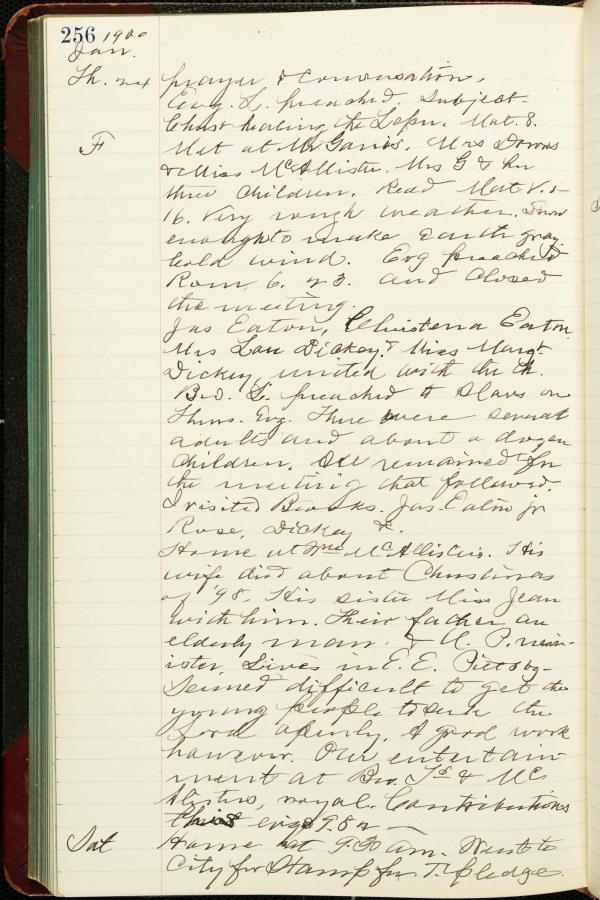 256 1900
Jan.
Th. prayer & conversation.
Evg. L. preached. Subject.
Christ healing the Leper. Mat. 8.
F Met at Mr Ganis. Mrs Downs
& Miss McAllister. Mrs G & her
three children. Read Mat V. 1-
16. Very rough weather. Snow
enough to make earth gray.
Cold wind. Evg preached
Rom. 6. 23. and closed
the meeting.
Jas Eaton, Christena Eaton,
Mrs Lou Dickey & Miss Margt.
Dickey united with the Ch.
Bro. L. preached to Slavs on
Thurs. Evg. There were several
adults and about a dozen
children. All remained for
the meeting that followed.
I visited Brooks. Jas. Eaton jr
Rose, Dickey &.
Home at McAllisters. His
wife died about Christmas
of '98. His sister Miss Jean
with him. Their father an
elderly man, & U. P. min-
ister lives in E. E. Pittsbg-
Seemed difficult to get the
young people to seek the
Lord openly. A good work
however. Our entertain-
ment at Bro. & Mc
Alisters, royal. Contributions
evig 9.82
Sat Home at 9.30 am. Went to
City for Stamp for T. pledge.